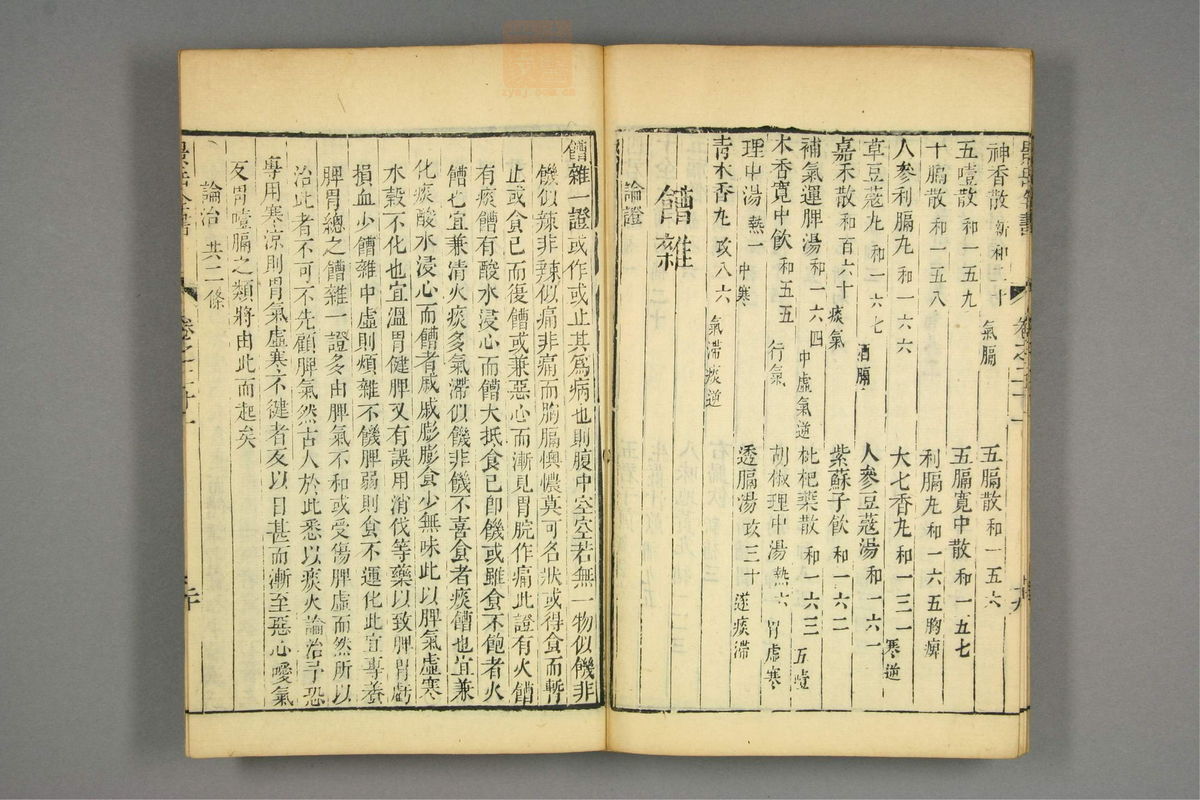 神香散 新和二十 氣膈
五膈散 和一五六
五噎散 和一五九
五膈寬中散 和一五七
十膈散 和一五八
利膈丸 和一六五 胸痺
人參利膈丸 和一六六
大七香丸 和一三一 寒逆
草豆蔻丸 和一六七 酒膈
人參豆蔻湯 和一六一
嘉禾散 和百六十 痰氣
紫蘇子飲 和一六二
補氣運脾湯 和一六四 中虛氣逆
枇杷葉散 和一六三 五噎
木香寬中飲 和五五 行氣
胡椒理中湯 熱六 胃虛寒
理中湯 熱一 中寒
透膈湯 攻三十 逐痰滯
青木香丸 攻八六 氣滯痰逆
嘈雜
論證
嘈雜一證或作或止其爲病也則腹中空空若無一物似饑非
饑似辣非辣似痛非痛而胸膈懊憹莫可名狀或得食而暫
止或食已而復嘈或兼惡心而漸見胃脘作痛此證有火嘈
有痰嘈有酸水浸心而嘈大抵食已卽饑或雖食不飽者火
嘈也宜兼清火痰多氣滯似饑非饑不喜食者痰嘈也宜兼
化痰酸水浸心而嘈者戚戚膨膨食少無味此以脾氣虛寒
水穀不化也宜溫胃健脾又有誤用消伐等藥以致脾胃虧
損血少嘈雜中虛則煩雜不饑脾弱則食不運化此宜專養
脾胃總之嘈雜一證多由脾氣不和或受傷脾虛而然所以
治此者不可不先顧脾氣然古人於此悉以痰火論治予恐
專用寒凉則胃氣虛寒不健者反以日甚而漸至惡心噯氣
反胃噎膈之類將由此而起矣
論治 共二條